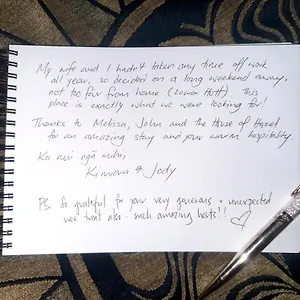 My wife and I hadn't taken any time off work
all year, so decided on a long weekend away,
not too far from home (Lower Hutt). This
place is exactly what we were looking for!
Thanks to Melissa, John and the House of Hazel
for an amazing stay and your warm hospitality
Ka nui ngā mihi,
& Jody
PS. So grateful for your very generous & unexpected
wee treat also - such amazing hosts!!